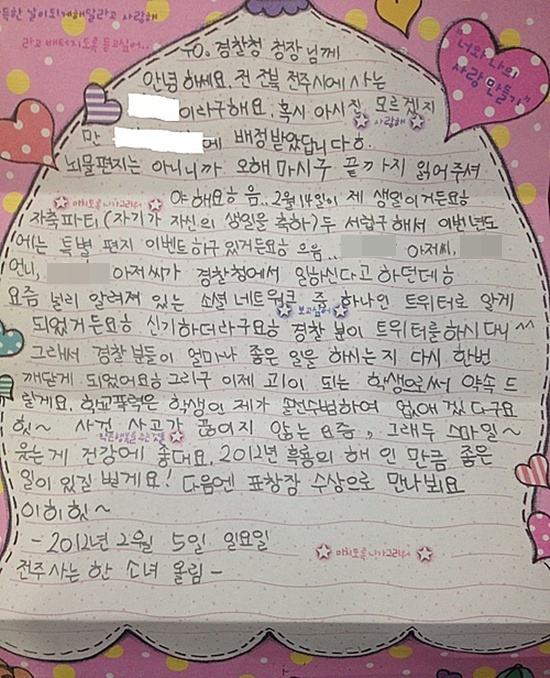 특한 날이 되게 해달라고 사랑해
라고 배터지도록 듣고싶어..
"너와 나의
사랑 만들기"
TO. 경찰청 청장님께
안녕하세요. 전 전북 전주시에 사는
이라구해요. 혹시 아시진 모르겠지
사랑해
만 에 배정받았답니다ㅎ
뇌물편지는 아니니까 오해 마시구 끝까지 읽어주셔
야 해요ㅎ 음.. 2월 14일이 제 생일이거든요ㅎ
미치도록 니가 그리워
자축파티(자기가 자신의 생일을 축하)두 서럽구해서 이번년도
에는 특별 편지 이벤트하구 있거든요ㅎ 으음.. 아저씨,
언니, 아저씨가 경찰청에서 일하신다고 하던데ㅎ
요즘 널리 알려져 있는 소셜 네트워크 중 하나인 트위터로 알게
보고싶어
되었거든요ㅎ 신기하더라구요ㅎ 경찰 분이 트위터를 하시다니 ^^
그래서 경찰 분들이 얼마나 좋은 일을 하시는지 다시 한번
깨닫게 되었어요ㅎ 그리구 이제 고1이 되는 학생으로써 약속 드
릴게요. 학교폭력은 학생인 제가 솔선수범하여 없애겠다구요
힛~ 사건 사고가 끊이지 않는 요즘, 그래두 스마일~
웃는게 건강에 좋대요. 2012년 흑룡의 해 인 만큼 좋은
일이 있길 빌게요! 다음엔 표창장 수상으로 만나뵈요
이히힛~
- 2012년 2월 5일 일요일
미치도록 니가 그리워
전주사는 한 소녀 올림 -